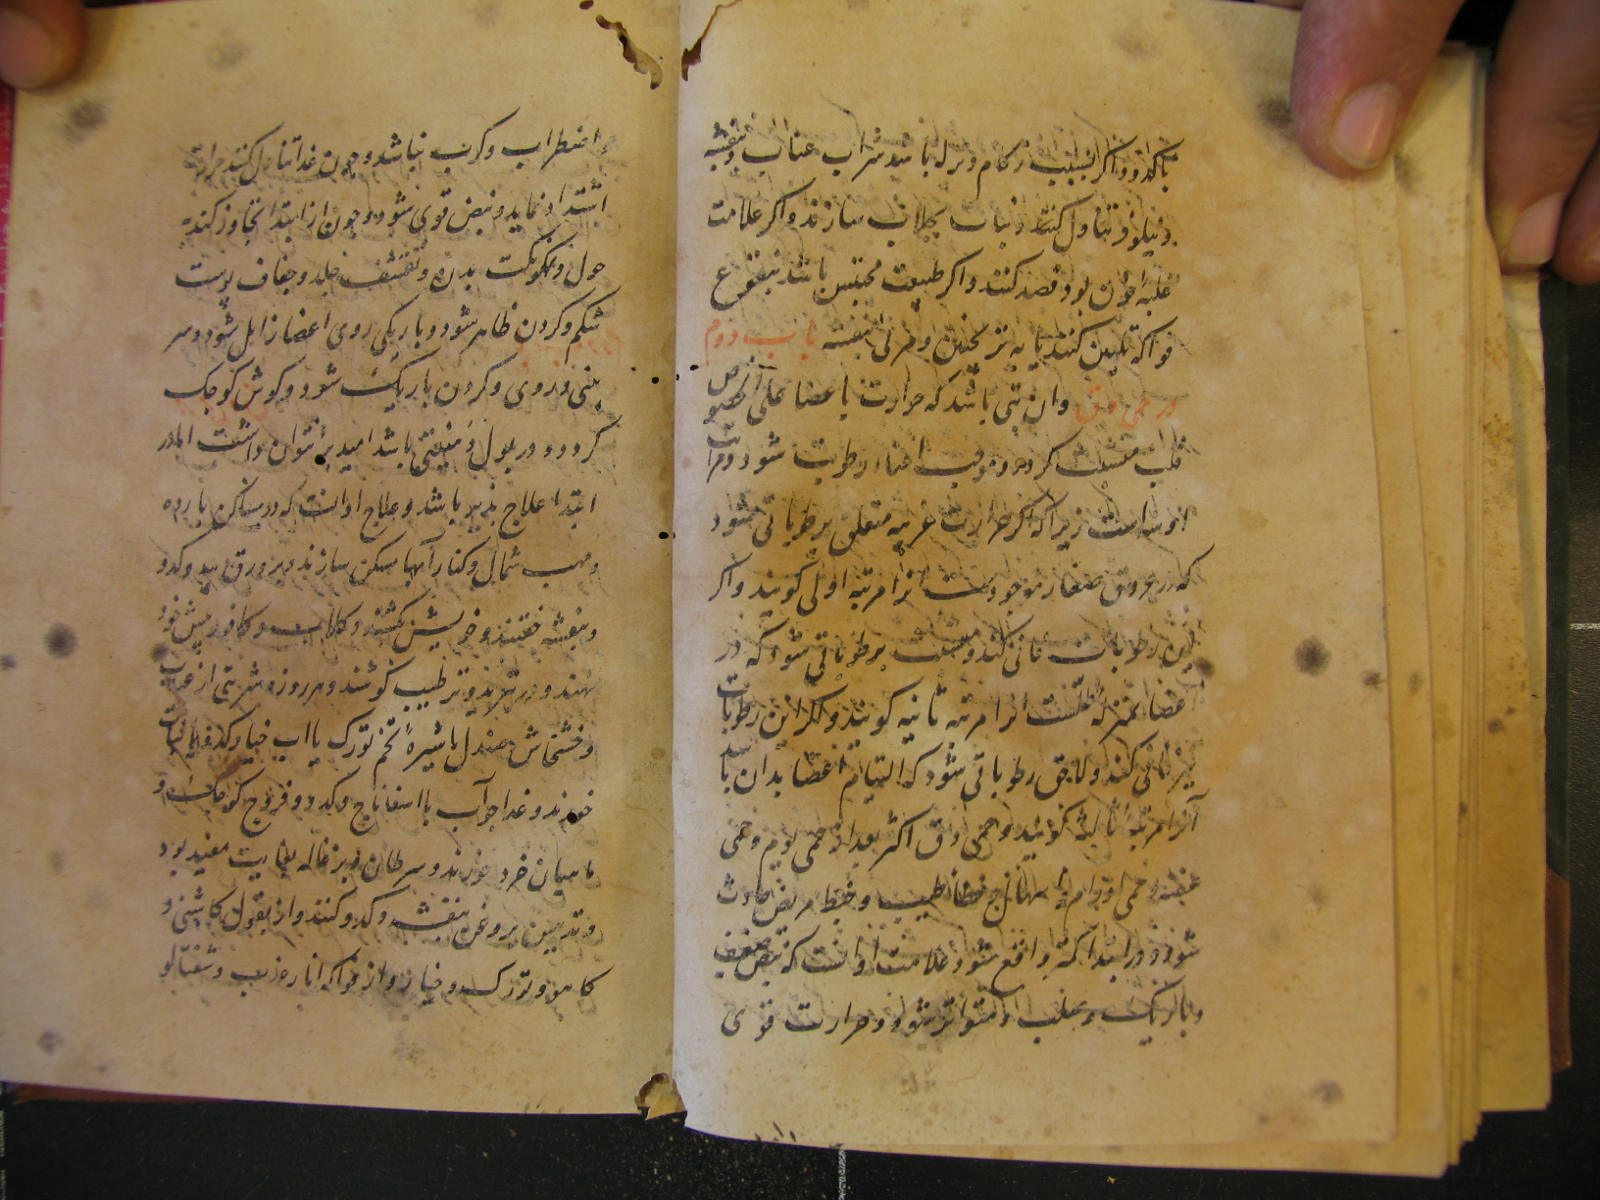 باکدو و اکر بسبب زکام و نزله باشد شراب عناب و بنفشه
و نیلوفر تناول کنند و نبات بجلاب سازند و اکر علامت
غلبه خون بود فصد کنند و اکر طبیعت محتبس باشد بنقوع
فواکه تلیین کنند یا به ترنجبین و مربی بنفشه باب دوم
در حمی دق و ان تبی باشد که حرارت با عضا علی الخصوص
قلب متشبث کردد و موجب افناء رطوبت شود و مراتب
او سه است زیرا که اکر حرارت غریبه متعلق برطوباتی شود
که در عروق صغار موجودست انرا مرتبه اولی کویند و اکر
این رطوبات فانی کند و متشبث برطوباتی شود که در
اعضا انرا مرتبه ثانیه کویند و اکر این رطوبات
نیز فانی کند و لاحق رطوباتی شود که التیام اعضا بدان باشد
آنرا مرتبه ثالثه کویند و حمی دق اکثر بعد از حمی یوم و حمی
عفنه و حمی اورام خطا طبیب و خبط مریض حادث
شود و در ابتدا کمتر واقع شود و علامت او انست که نبض ضعیف
و باریک و صلب و متواتر شود و حرارت قوی
و اضطراب و کرب نباشد و چون غذا تناول کنند حرارت
اشتداد نماید و نبض قوی شود و چون از ابتدا تجاوز کند
بدن و تقشف جلد و جفاف پوست
شکم و کردن ظاهر شود و باریکی روی اعضا زایل شود و سر
بینی و روی و کردن باریک شود و کوش کوچک
کردد و در بول باشد امید نتوان داشت اما در
ابتدا علاج پذیر باشد و علاج او انست که در مساکن بارده
و مهب شمال و کنار آبها مسکن سازند و بر ورق بید و کدو
و بنفشه خفتند و کلاب و کافور پیش خود
نهند و در تبرید و ترطیب کوشند و هر روزه شربتی از عناب
و خشخاش و صندل با شیره تخم تورک یا اب خیار و کدو
خورند و غذا جو آب با اسفاناج و کدو و فروج کوچک و
ماهیان خرد خورند و سرطان و بزغاله بغایت مفید بود
و تدهین بروغن بنفشه و کدو کنند و از بقول کاسنی و
کاهو و تورک و خیار و از فواکه انار عذب و شفتالو